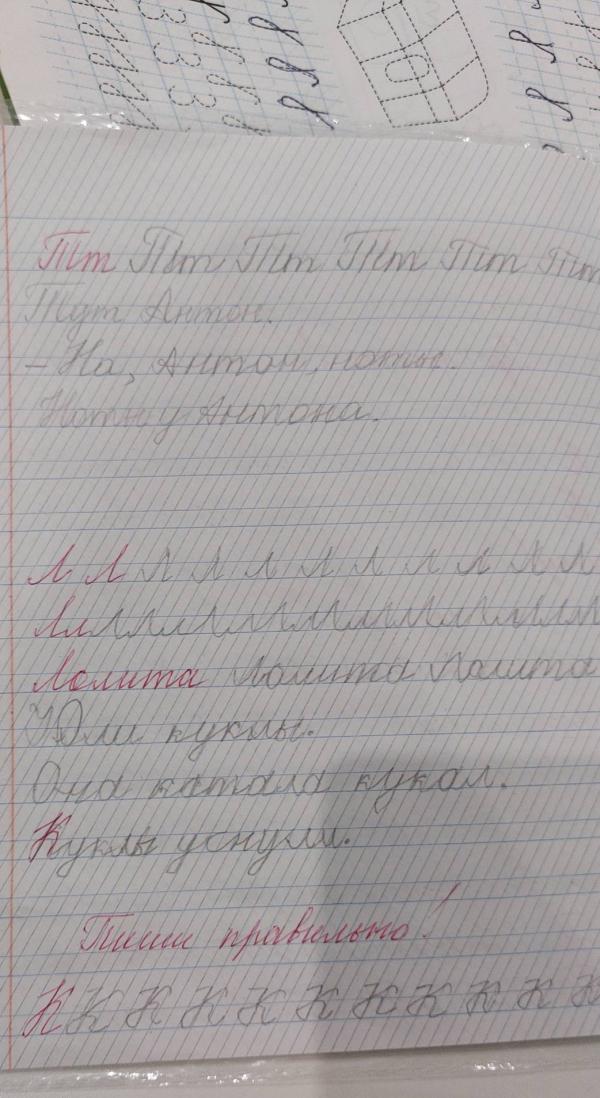 Тт Тт Тт Тт Тт Тт
Тут Антон.
– На, Антон, ноты.
Ноты у Антона.
Л Л Л Л Л Л Л Л Л Л
Лолита Лолита Лолита
Оли куклы.
Она катала кукол.
Куклы уснули.
Пиши правильно!
К К К К К К К К К К К